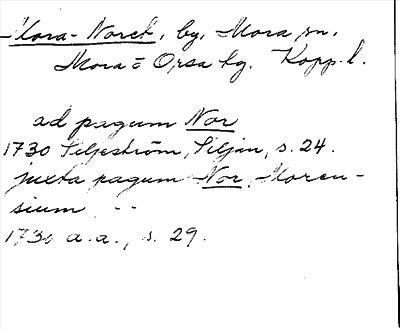 Mora-Noret, by, Mora sn.
Mora o Orsa tg. Kopp. l.
ad pagum Nor
1730 Siljeström, Siljan, s. 24.
juxta pagum Nor, Moren-
sium --
1730 a.a., s. 29.